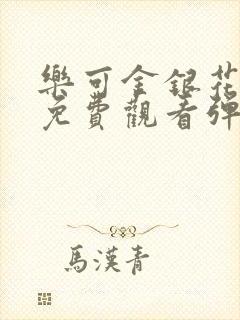 樂可金銀花
免費觀看彈
馬漢青